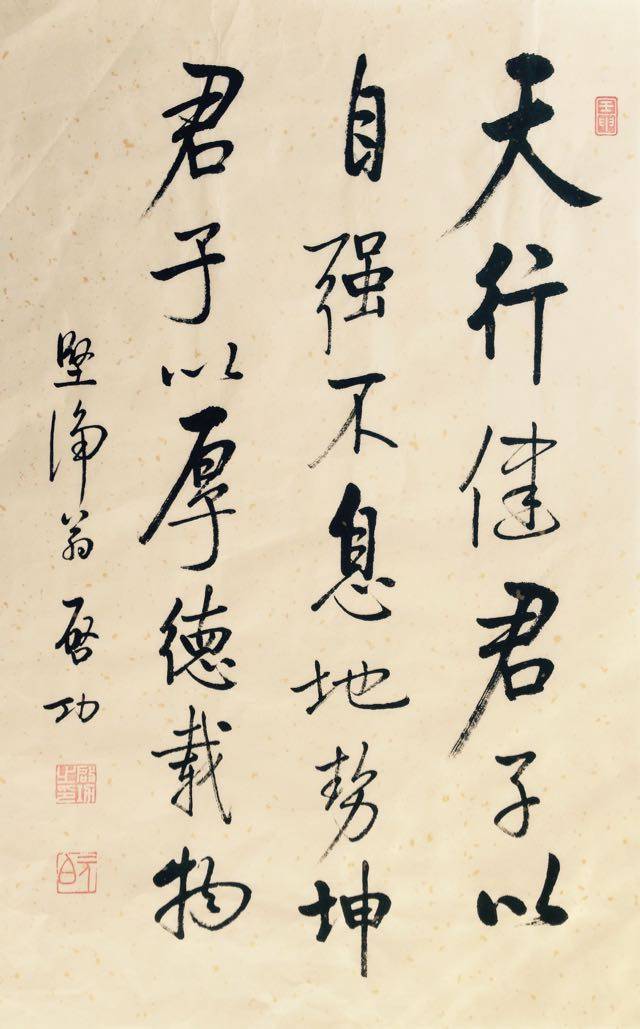 天行健君子以
自强不息地势坤
君子以厚德载物
坚净翁启功